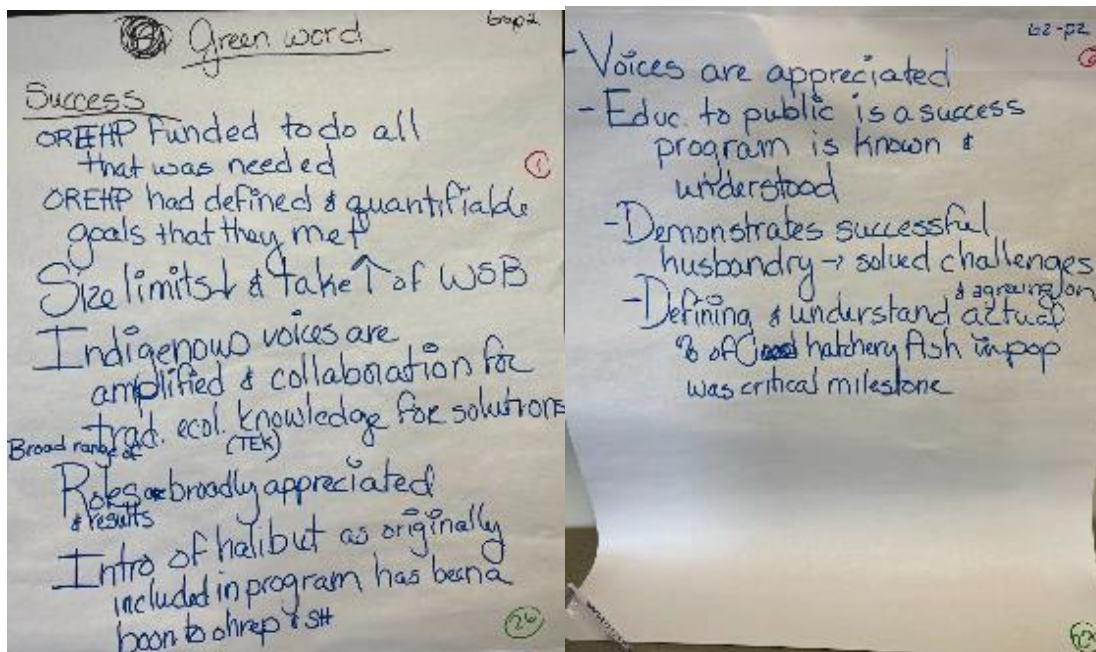 Green word
Group 2
Success
OREHP Funded to do all
that was needed
①
OREHP had defined & quantifiable
goals that they met
Size limits↓ & take↑ of WSB
Indigenous voices are
amplified & collaboration for
trad. ecol. knowledge for solutions
(TEK)
Broad range of
Roles broadly appreciated
& results
Intro of halibut as originally
included in program has been a
boon to
26
G2-p2
- Voices are appreciated
- Educ. to public is a success
program is known &
understood
- Demonstrates successful
husbandry → solved challenges
& agreeing on
- Defining & understand actual
% of hatchery fish in pop
was critical milestone